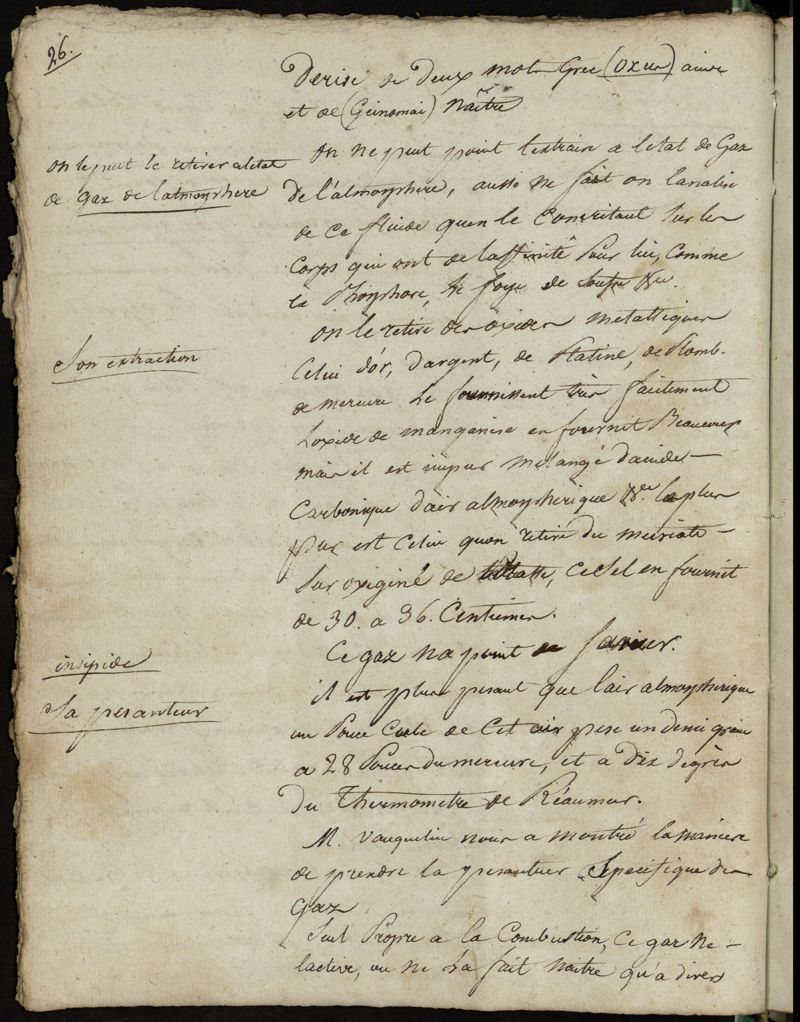 26.
Derive de deux mots Grec (oxus) aigre
et de (Geinomai) Naître
on le peut le retirer a letat
de gaz de latmosphere
on ne peut point lextraire a letat de Gaz
de l'atmosphere, aussi ne fait on lanalise
de ce fluide quen le concretant sur les
corps qui ont de laffinité pour lui, comme
le Phosphore, le foye de soufre &ce.
Son extraction
on le retire des oxides metalliques
Celui d'or, d'argent, de Platine, de Plomb.
de mercure le fournissent très facilement
Loxide de manganese en fournit Beaucoup
mais il est impur melangé dacide
Carbonique d'air atmospherique &ce. le plus
pur est Celui quon retire du muriate
sur oxigené de Potasse, ce sel en fournit
de 30. a 36. Centiemes.
insipide
Ce gaz na point de saveur.
Sa pesanteur
il est plus pesant que lair atmospherique
un Pouce Cube de cet air pese un demi grain
a 28 Pouces du mercure, et a dix degrés
du Thermometre de Réaumur.
M. Vauquelin nous a montré la maniere
de prendre la pesanteur Specifique des
Gaz
Seul Propre a la Combustion, Ce gaz ne
lactive, ou ne la fait naitre qu'a divers